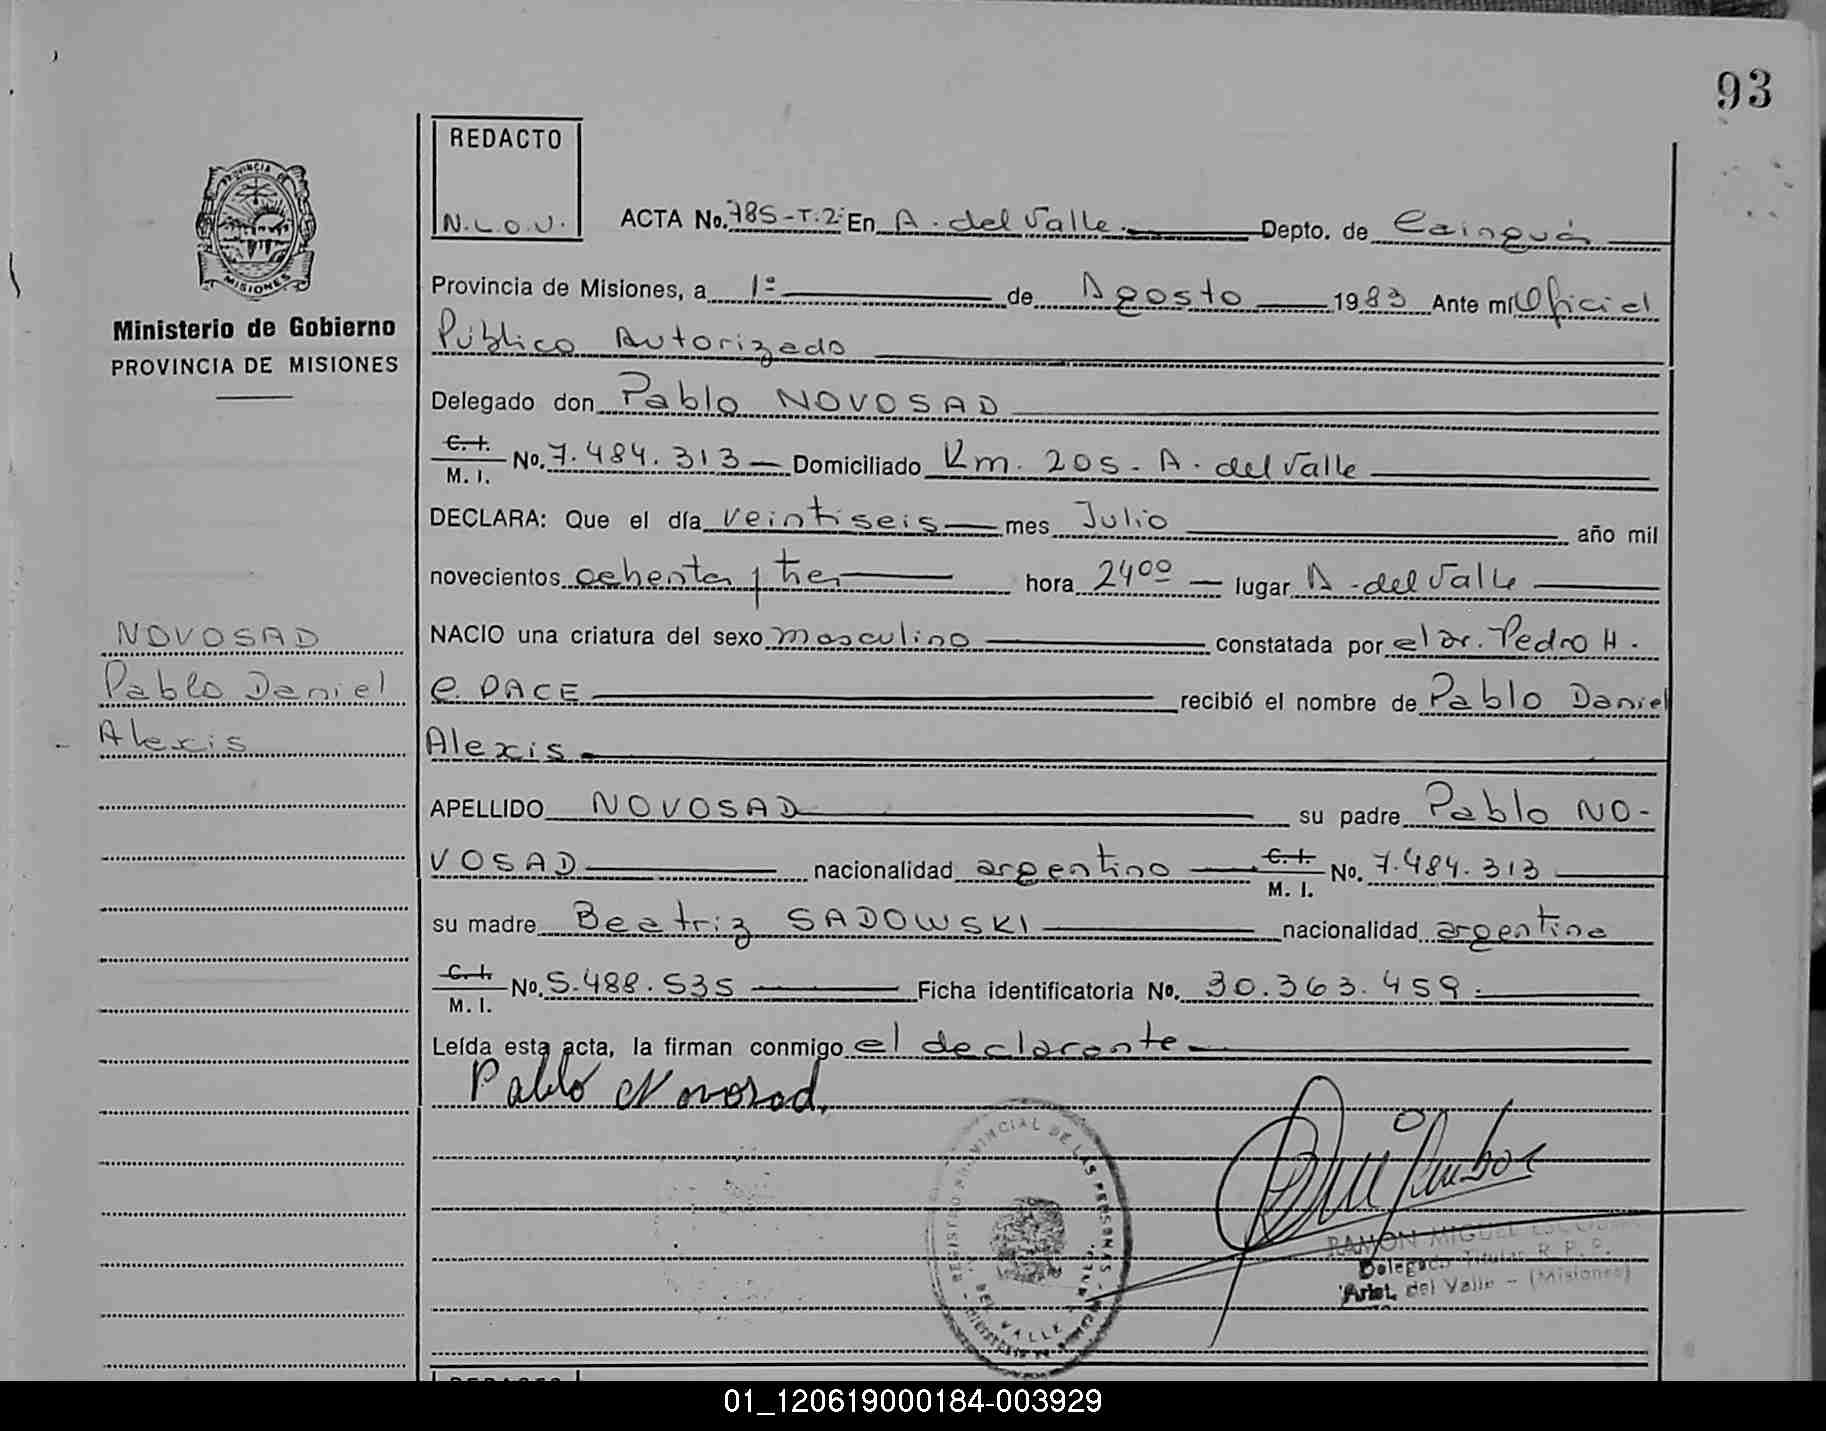 93
REDACTO
N.L.O.V.
PROVINCIA DE
MISIONES
Ministerio de Gobierno
PROVINCIA DE MISIONES
ACTA No. 785-T.2- En A. del Valle Depto. de Cainguás
Provincia de Misiones, a 1º de Agosto 1983 Ante mí Oficial
Público Autorizado
Delegado don Pablo NOVOSAD
C. I. M. I. No. 7.484.313 Domiciliado Km. 205. A. del Valle
DECLARA: Que el día veintiseis mes Julio año mil
novecientos ochenta y tres hora 24⁰⁰ lugar A. del Valle
NOVOSAD
Pablo Daniel
Alexis
NACIO una criatura del sexo masculino constatada por el Dr. Pedro H.
e. PACE recibió el nombre de Pablo Daniel
Alexis
APELLIDO NOVOSAD su padre Pablo NO-
VOSAD nacionalidad argentino C. I. M. I. No. 7.484.313
su madre Beatriz SADOWSKI nacionalidad argentina
C. I. M. I. No. 5.488.535 Ficha identificatoria No. 30.363.459.
Leída esta acta, la firman conmigo el declarante
Pablo Novosad
REGISTRO PROVINCIAL DE LAS PERSONAS
DEL VALLE
RAMON MIGUEL
Delegado Titular R. P. P.
Arist. del Valle - (Misiones)
REDACTO
01_120619000184-003929